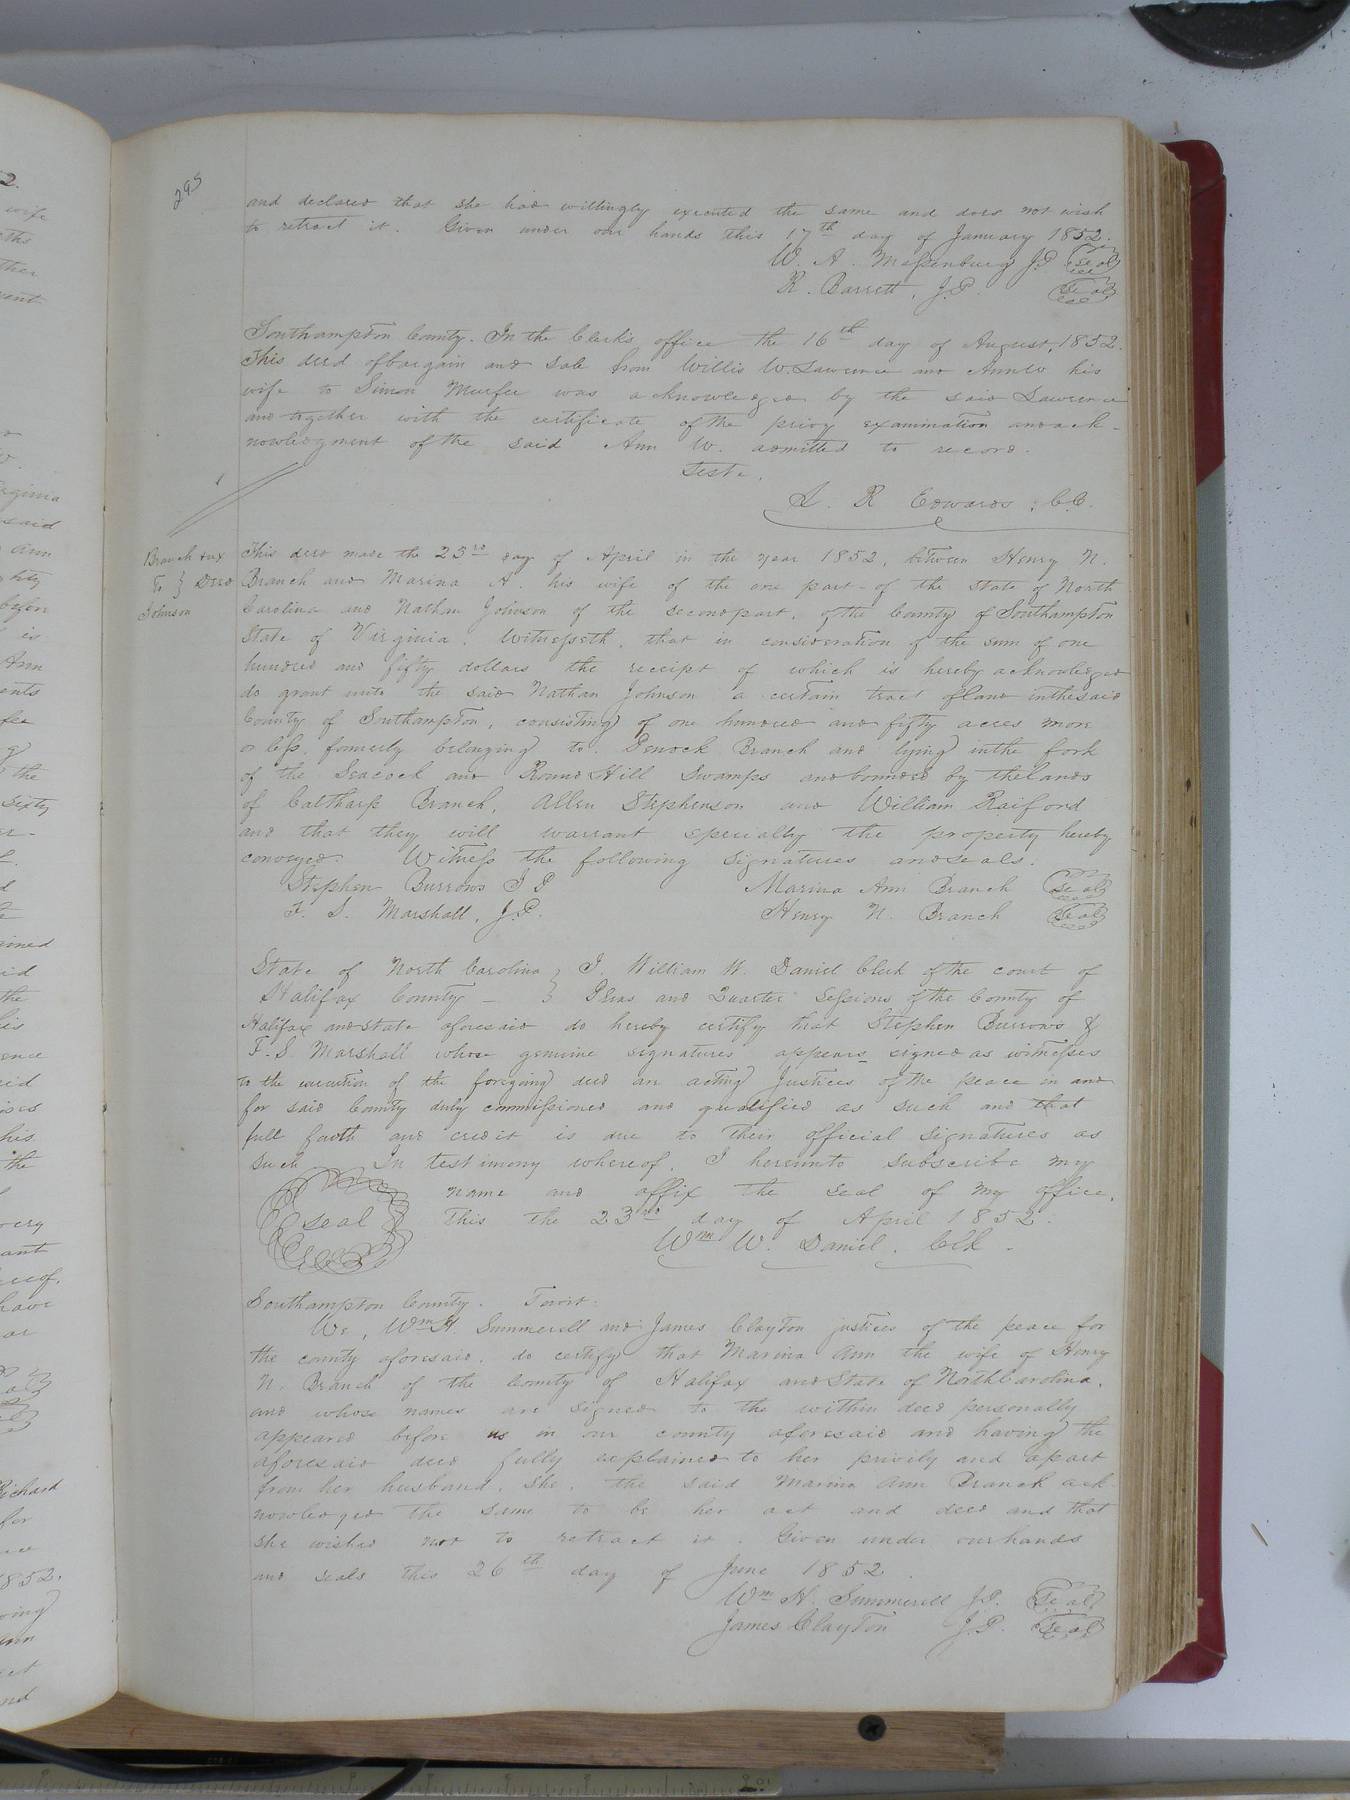 295
and declared that she had willingly executed the same and does not wish
to retract it. Given under our hands this 17th day of January 1852.
W. A. Messenburg J.P. Seal
R. Barrett, J.P. Seal
Southampton County. In the Clerk's office the 16th day of August, 1852.
This deed of bargain and sale from Willis W. Lawrence and Ann W his
wife to Simon Murfee was acknowledged by the said Lawrence
and together with the certificate of the privy examination and ack-
nowledgment of the said Ann W. admitted to record.
Teste,
L. R. Edwards, C.C.
Branch & ux
To } Deed
Johnson
This deed made the 23rd day of April in the year 1852, between Henry N.
Branch and Marina A. his wife of the one part of the State of North
Carolina and Nathan Johnson of the second part, of the County of Southampton
State of Virginia. Witnesseth, that in consideration of the sum of one
hundred and fifty dollars the receipt of which is hereby acknowledged
do grant unto the said Nathan Johnson a certain tract of land in the said
County of Southampton, consisting of one hundred and fifty acres more
or less, formerly belonging to Branch and lying in the fork
of the Seacock and Round Hill Swamps and bounded by the lands
of Calthorp Branch, Allen Stephenson and William Raiford
and that they will warrant specially the property hereby
conveyed. Witness the following signatures and seals.
Stephen Burrows J P Marina Ann Branch Seal
F. S. Marshall, J.P. Henry N. Branch Seal
State of North Carolina } I, William W. Daniel Clerk of the court of
Halifax County - } Pleas and Quarter Sessions of the County of
Halifax and State aforesaid do hereby certify that Stephen Burrows &
F. S. Marshall whose genuine signatures appears signed as witnesses
to the execution of the foregoing deed are acting Justices of the peace in and
for said County duly commissioned and qualified as such and that
full faith and credit is due to their official signatures as
such In testimony whereof, I hereunto subscribe my
seal
name and affix the seal of my office,
this the 23rd day of April 1852.
Wm W. Daniel, Clk.
Southampton County. Towit:
We, Wm H. Summerell and James Clayton justices of the peace for
the county aforesaid, do certify that Marina Ann the wife of Henry
N. Branch of the County of Halifax and State of North Carolina,
and whose names are signed to the within deed personally
appeared before us in our county aforesaid and having the
aforesaid deed fully explained to her privily and apart
from her husband, she, the said Marina Ann Branch ack
nowledged the same to be her act and deed and that
she wished not to retract it. Given under our hands
and seals this 26th day of June 1852.
Wm H. Summerell J.P. Seal
James Clayton J.P. Seal